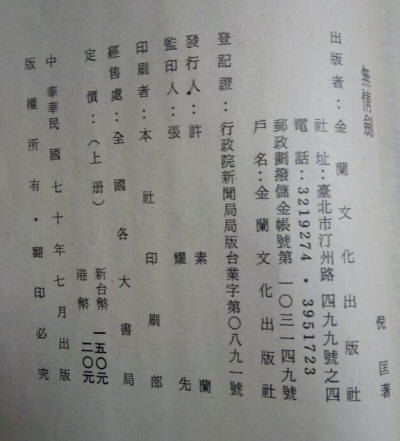 無情劍
倪匡著
出版者：金蘭文化出版社
社址：臺北市汀州路四九九號之四
電話：3219274・3951723
郵政劃撥儲金帳號第一〇三一四九號
戶名：金蘭文化出版社
登記證：行政院新聞局局版台業字第〇八九一號
發行人：許素蘭
監印人：張耀先
印刷者：本社印刷部
經售處：全國各大書局
定價：（上册）新台幣一五〇元
港幣二〇元
中華華民國七十年七月出版
版權所有・翻印必究